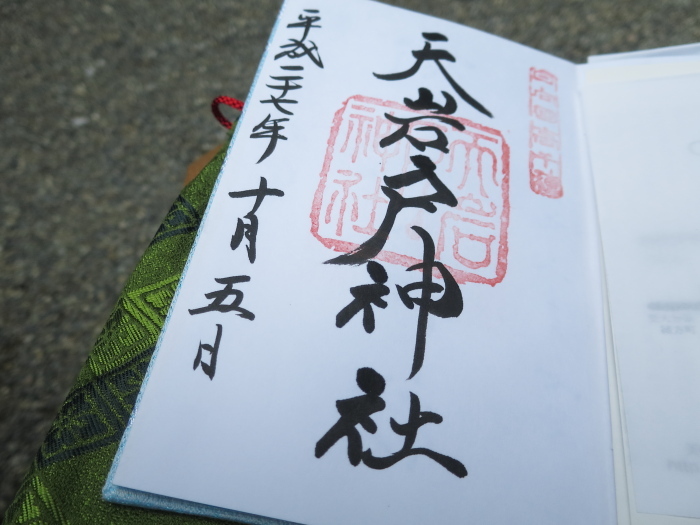 天岩戸神社
天岩戸
神社
平成二十七年十月五日